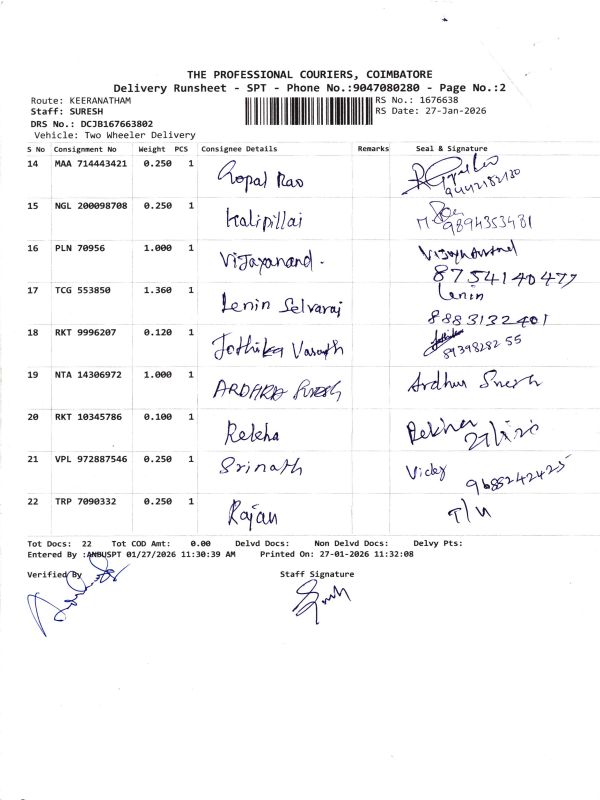 THE PROFESSIONAL COURIERS, COIMBATORE
Delivery Runsheet - SPT - Phone No.:9047080280 - Page No.:2
Route: KEERANATHAM RS No.: 1676638
Staff: SURESH RS Date: 27-Jan-2026
DRS No.: DCJB167663802
Vehicle: Two Wheeler Delivery
S No Consignment No Weight PCS Consignee Details Remarks Seal & Signature
14 MAA 714443421 0.250 1 Gopal Rao
15 NGL 200098708 0.250 1 Kalipillai 9894353481
16 PLN 70956 1.000 1 Vijayanand. Vijayanand
8754140477
17 TCG 553850 1.360 1 Lenin Selvaraj Lenin
8883132401
18 RKT 9996207 0.120 1 Jothika Vasanth
8939828255
19 NTA 14306972 1.000 1
20 RKT 10345786 0.100 1 Rekha Rekha
21 VPL 972887546 0.250 1 Srinath Vicky 9688242425
22 TRP 7090332 0.250 1 Rajan T/N
Tot Docs: 22 Tot COD Amt: 0.00 Delvd Docs: Non Delvd Docs: Delvy Pts:
Entered By :ANBUSPT 01/27/2026 11:30:39 AM Printed On: 27-01-2026 11:32:08
Verified By Staff Signature